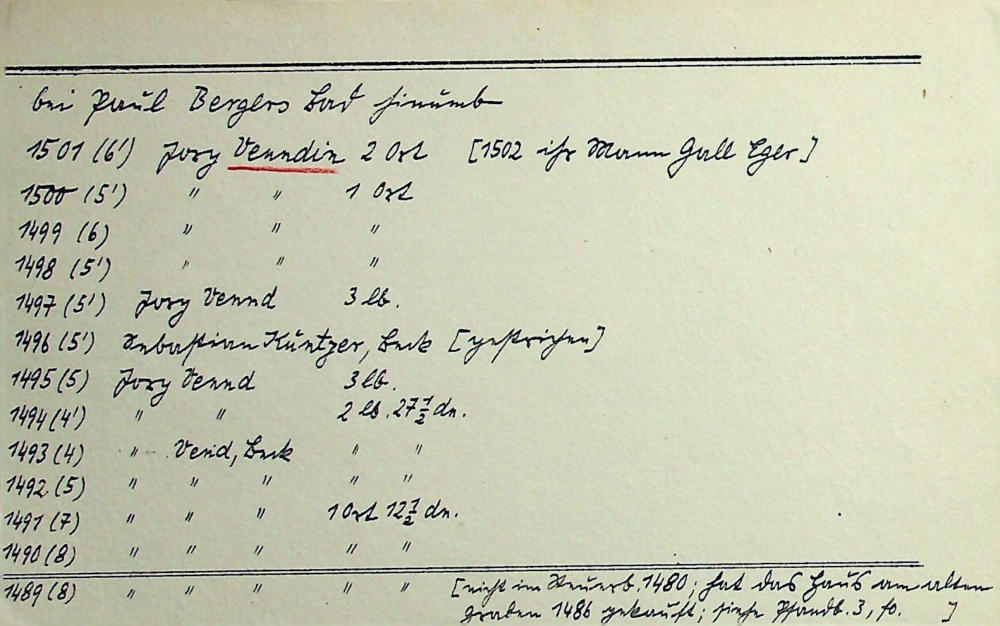 bei Paul Bergers Bad hinumb
1501 (6') Jory Venndin 2 Ort [1502 ihr Mann Gall Eger]
1500 (5') " " 1 Ort
1499 (6) " " "
1498 (5') " " "
1497 (5') Jory Vennd 3 lb.
1496 (5') Sebastian Küntzer, Beck [gestrichen]
1495 (5) Jory Vennd 3 lb.
1494 (4') " " 2 lb. 27 1/2 dn.
1493 (4) " Venid, Beck " "
1492 (5) " " " " "
1491 (7) " " " 1 Ort 12 1/2 dn.
1490 (8) " " " " "
1489 (8) " " " " " [nicht im Steuerb. 1480; hat das Haus am alten
graben 1486 gekauft; siehe Pfandb. 3, fo. ]